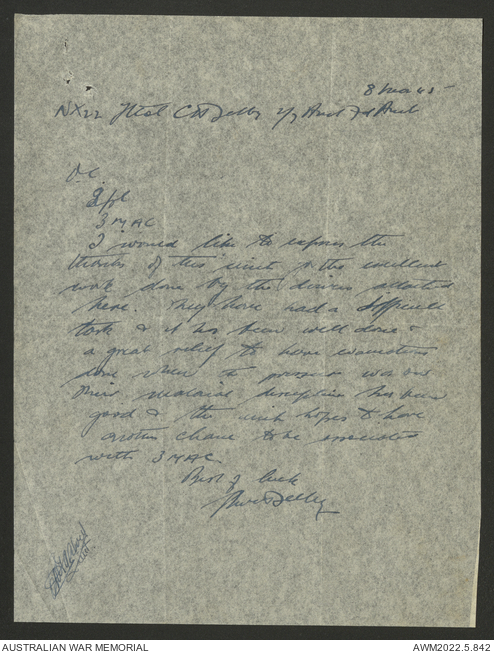 8 Mar 45
NX22 Lt Col C W Selby 2/7 Aust Fd Amb
O.C.
Pl
3 MAC
I would like to express the
thanks of this unit & the excellent
work done by the drivers attached
here. They have had a difficult
task & it has been well done &
a great relief to have evacuations
done when the pressure was on.
Their malaria discipline has been
good & the unit hopes to have
another chance to be associated
with 3 MAC.
Best of luck
Selby
AUSTRALIAN WAR MEMORIAL
AWM2022.5.842